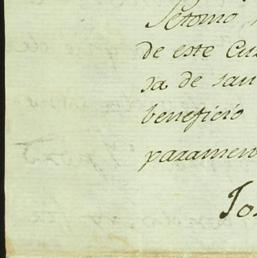 Se tomó
de este Cu
da de san
beneficio
paramen
Jo